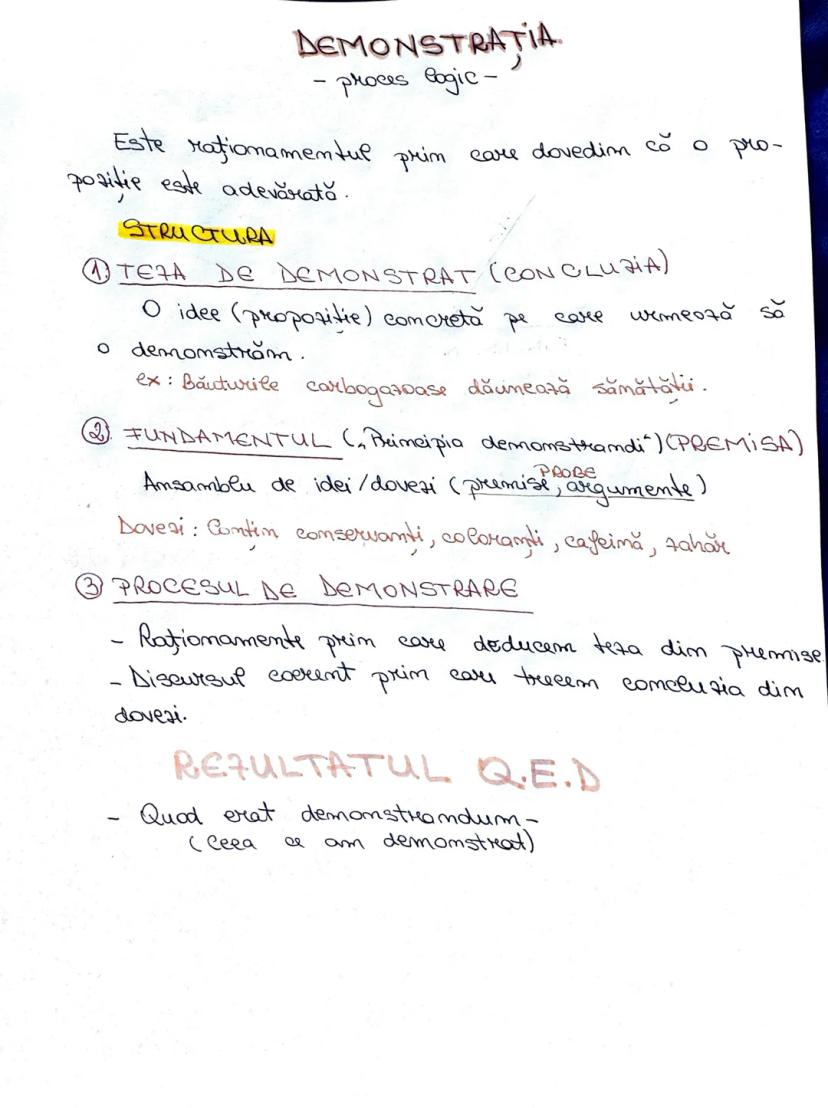 DEMONSTRAȚIA
- proces logic -
Este raționamentul prin care dovedim că o pro-
poziție este adevărată.
STRUCTURA
① TEZA DE DEMONSTRAT (CONCLUZIA)
O idee (propoziție) concretă pe care urmează să
o demonstrăm.
ex: Băuturile carbogazoase dăunează sănătății.
② FUNDAMENTUL („Principia demonstrandi") (PREMISA)
PROBE
Ansamblu de idei/dovezi (premise, argumente)
Dovezi: Conțin conservanți, coloranți, cafeină, zahăr
③ PROCESUL DE DEMONSTRARE
- Raționamente prin care deducem teza din premise
- Discursul coerent prin care trecem concluzia din
dovezi.
REZULTATUL Q.E.D
- Quod erat demonstrandum -
(Ceea ce am demonstrat)